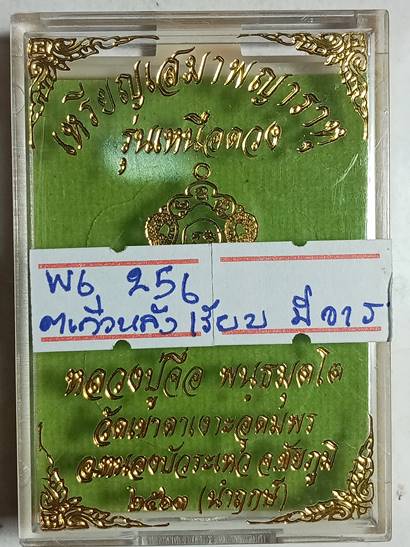 เหรียญเสมาพญาราหู
รุ่นเหนือดวง
พ6 256
ตะกั่วหลังเรียบ มีจาร
หลวงปู่จือ พนฺธมุตฺโต
วัดเขาตาเงาะอุดมพร
อ.หนองบัวระเหว จ.ชัยภูมิ
๒๕๖๓ (นำฤกษ์)